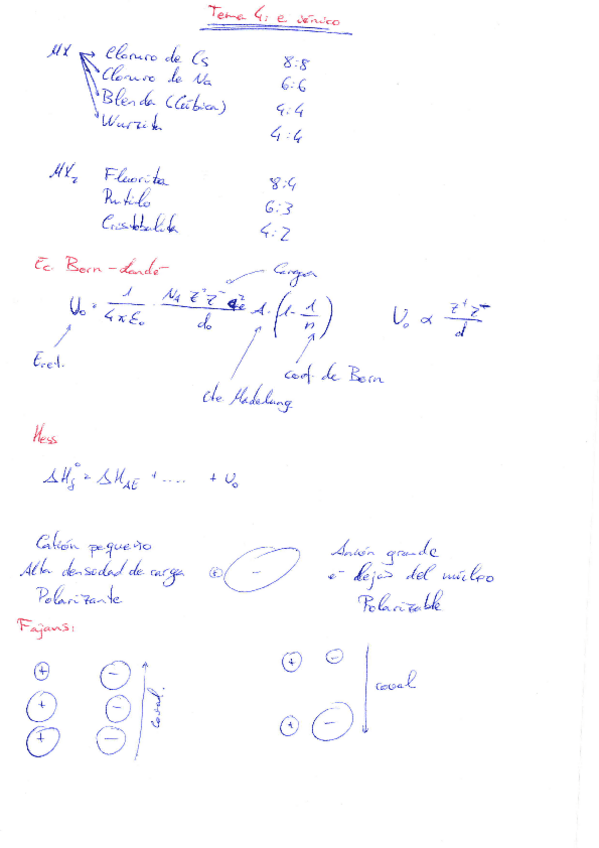 Tema 4: e. iónico
MX Cloruro de Cs 8:8
Cloruro de Na 6:6
Blenda (Cúbica) 4:4
Wurzita 4:4
MX₂ Fluorita 8:4
Rutilo 6:3
Cristobalita 4:2
Ec. Born-Landé
Cargas
U₀ = 1/(4πε₀) · (N_A Z⁺ Z⁻ e²)/d₀ · A · (1 - 1/n) U₀ ∝ Z⁺Z⁻/d
Eret.
coef. de Born
cte Madelung
Hess
ΔH_f° = ΔH_AE + .... + U₀
Catión pequeño
Alta densidad de carga
Polarizante
+ -
Anión grande
e⁻ lejos del núcleo
Polarizable
Fajans:
+ -
+ -
+ -
coval.
+ -
+ -
coval